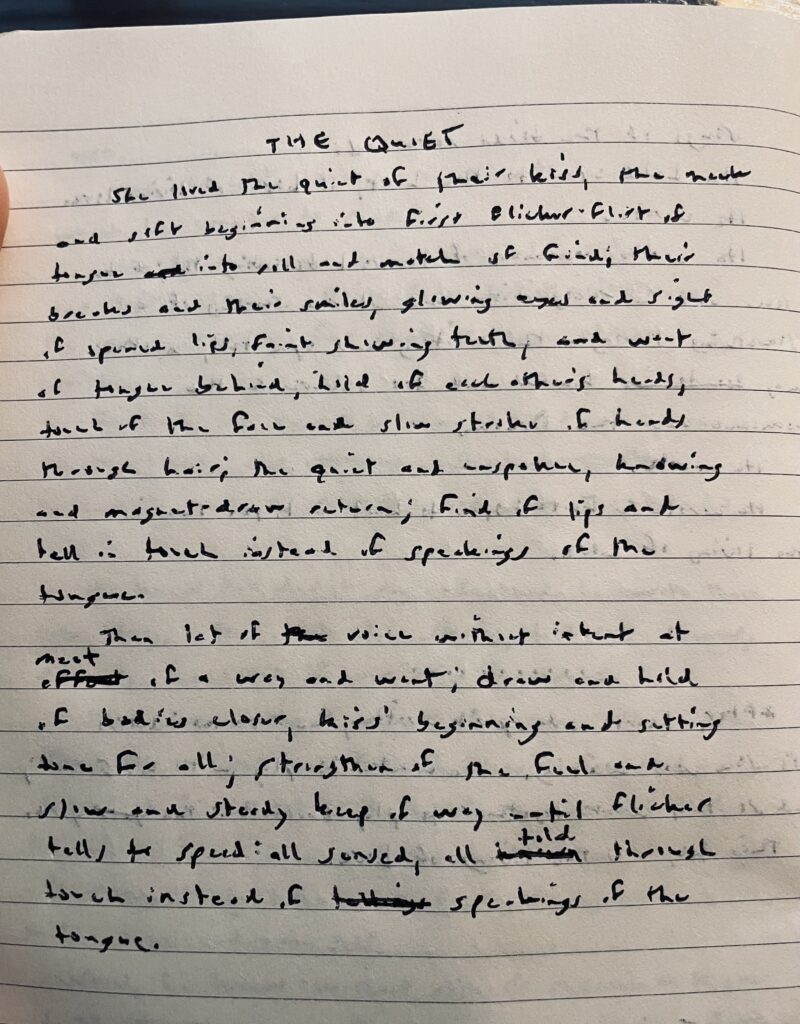 THE QUIET
She loved the quiet of their kiss, the meek
and soft beginning into first flicker-flirt of
tongue into roll and match of find; their
breaks and their smiles, glowing eyes and sight
of opened lips, faint showing teeth, and want
of tongue behind, hold of each other's heads,
touch of the face and slow stroke of hands
through hair; the quiet and unspoken, knowing
and magnet-drawn return; find of lips and
tell in touch instead of speakings of the
tongue.
Then let of voice without intent at
meet
of a way and want; draw and hold
of bodies closer, kiss' beginning and setting
tone for all; strengthen of the feel and
slow and steady keep of way until flicker
tells to speed: all sensed, all
told
through
touch instead of speakings of the
tongue.